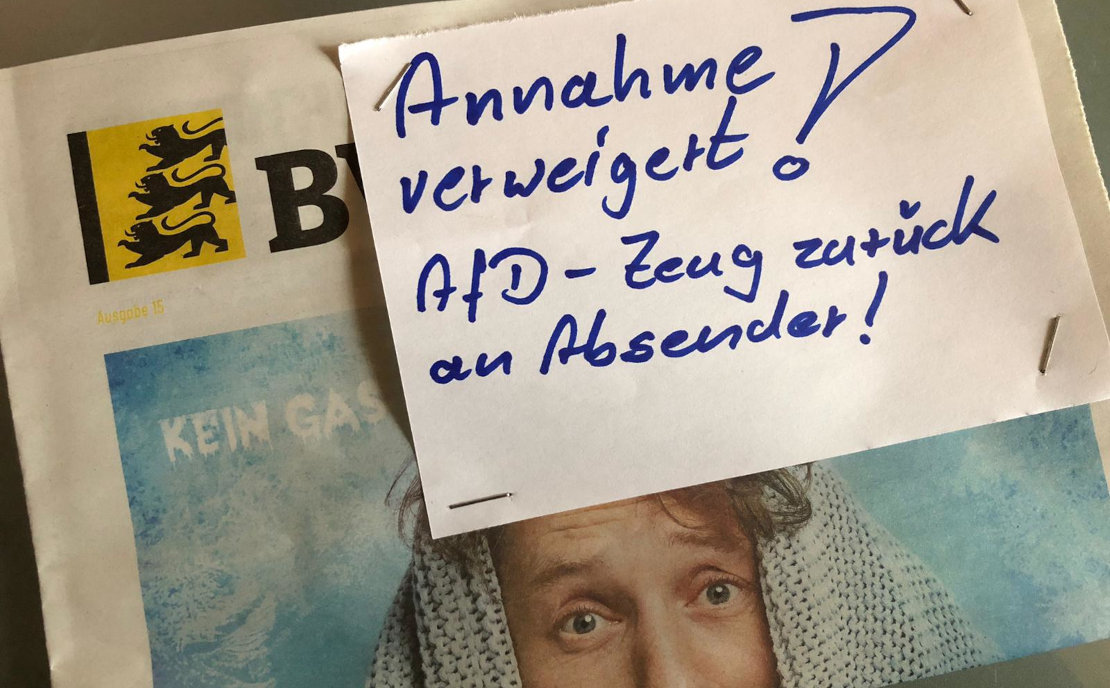 Annahme
verweigert!
AfD-Zeug zurück
an Absender!
Ausgabe 15
KEIN GAS